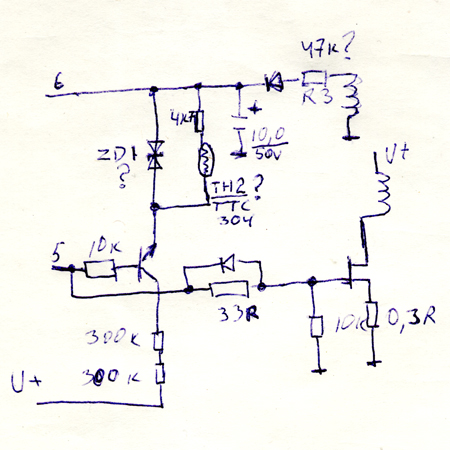 47k?
6
R3
4k7
+
10,0
50V
U+
ZD1
?
TH2?
TTC
304
5
10k
33R
10k
0,3R
300k
300k
U+